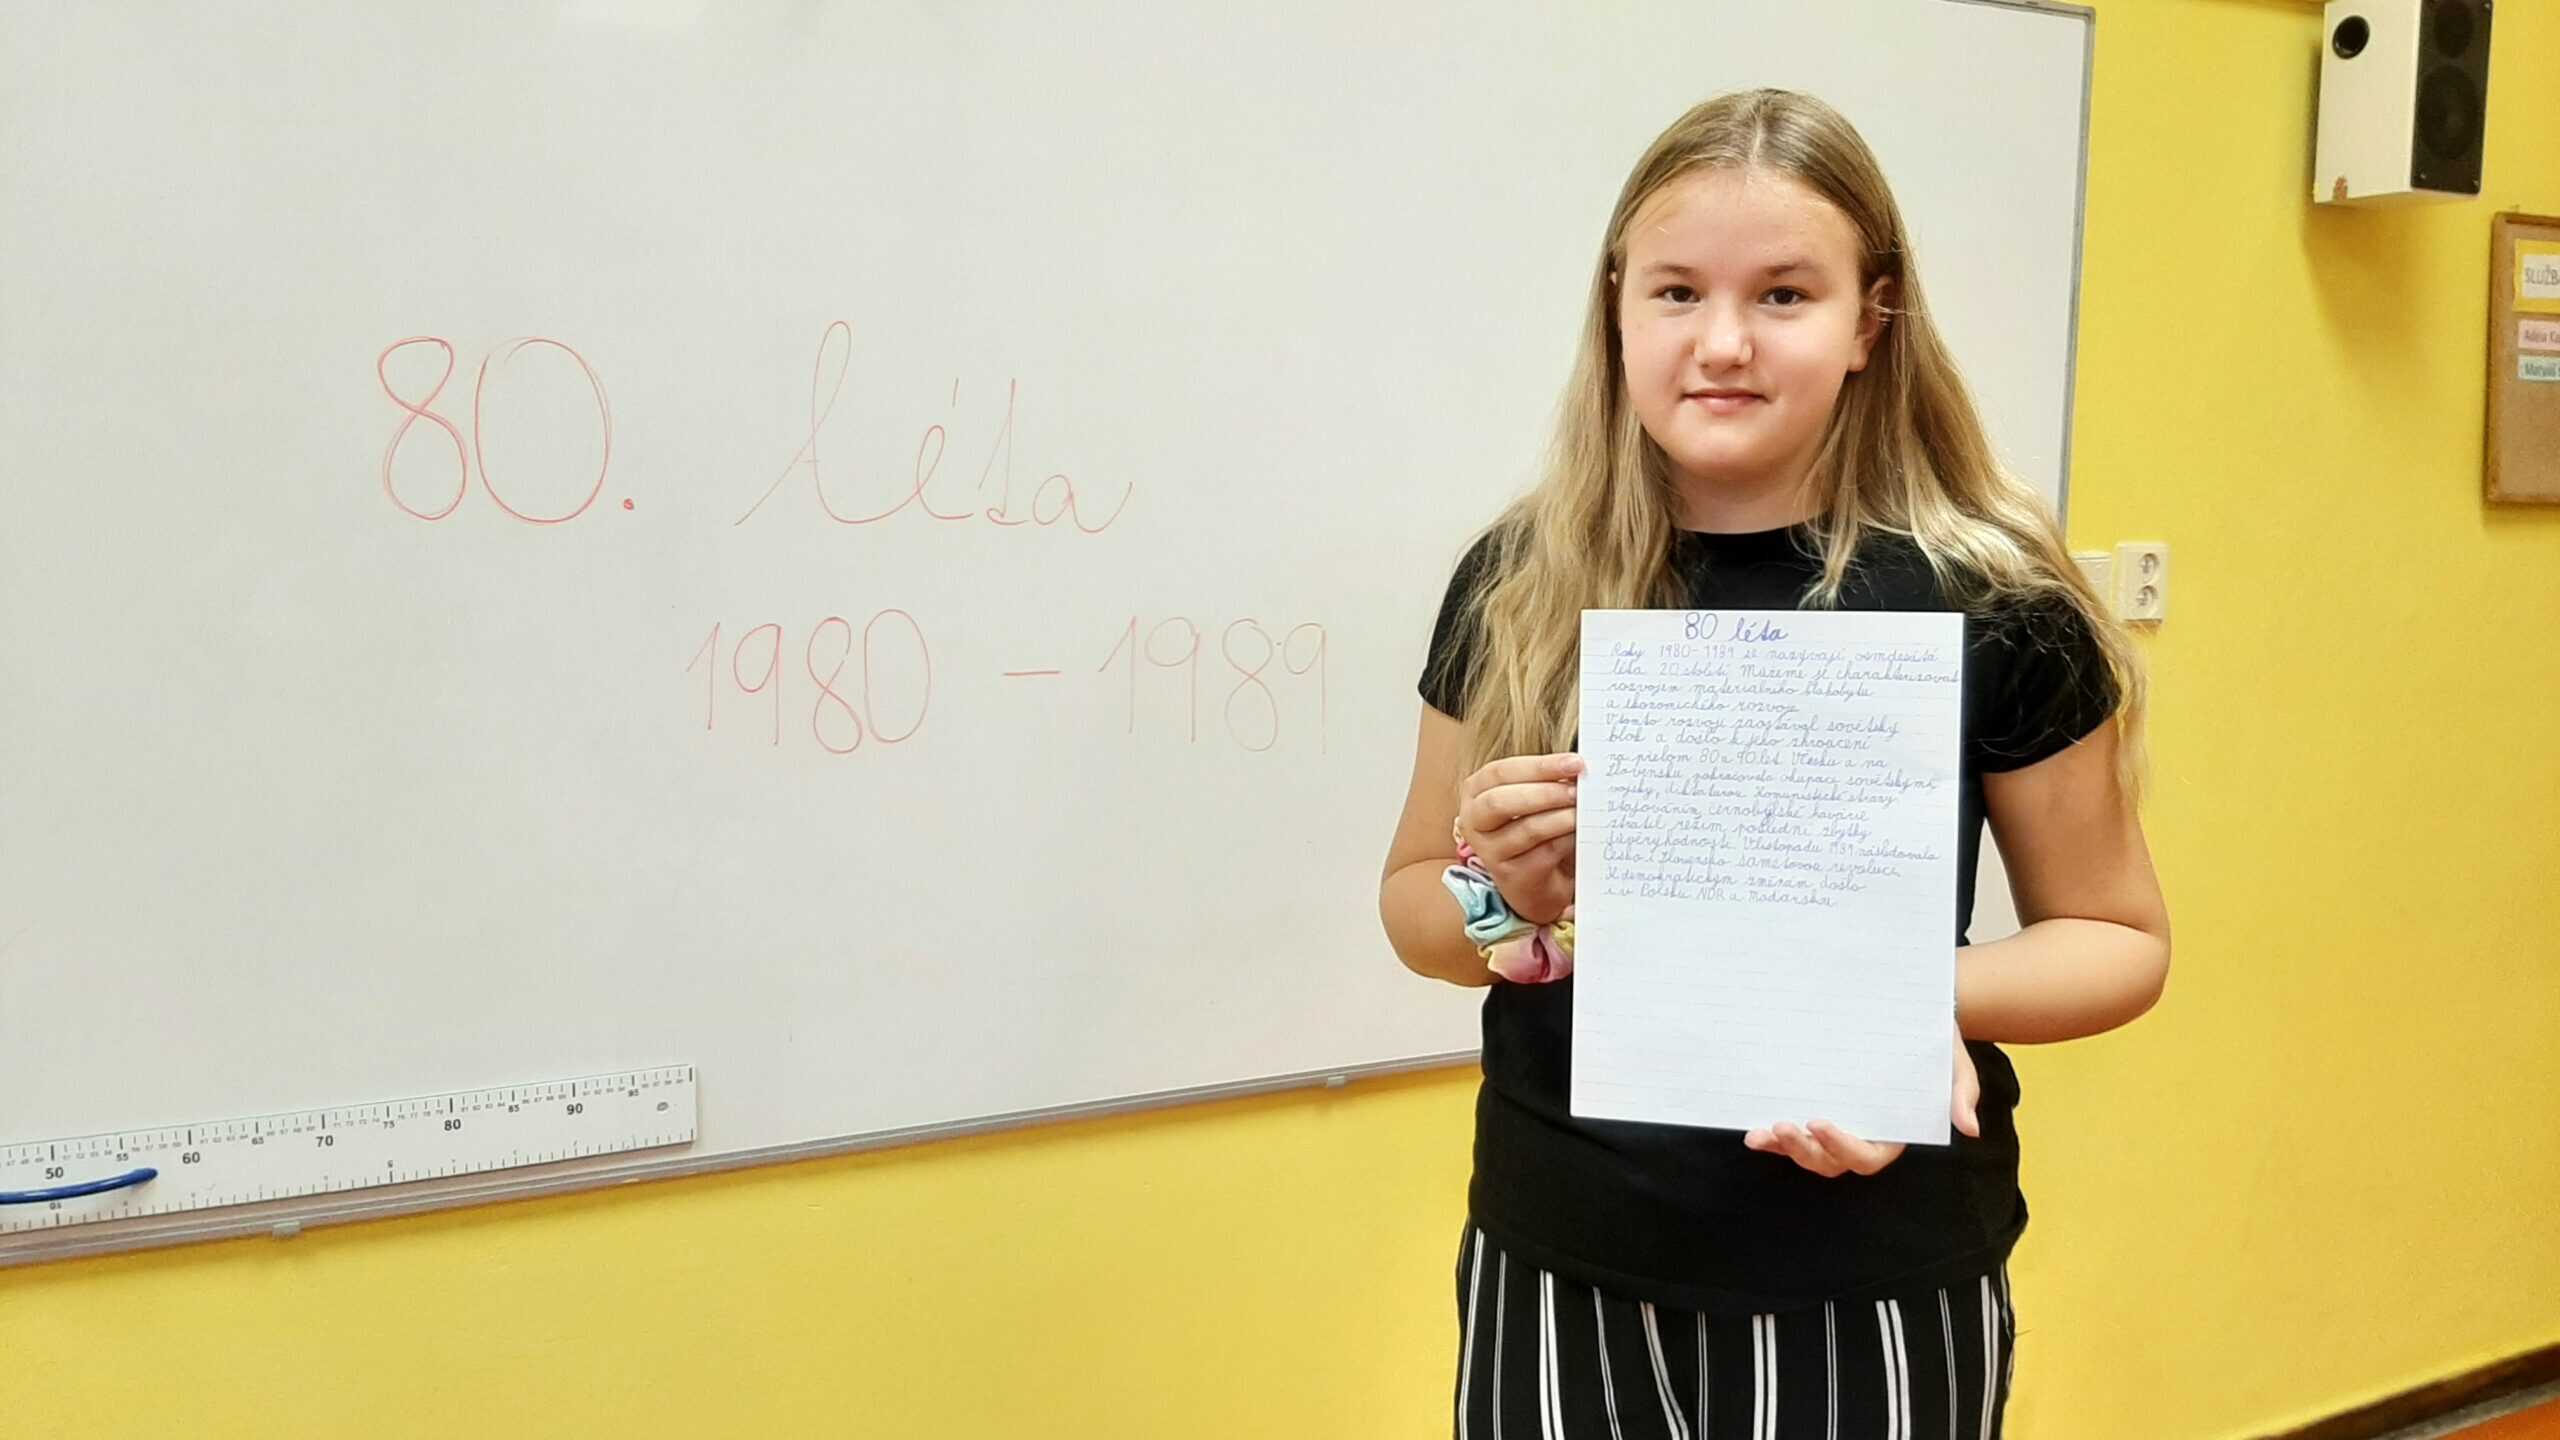 80. léta
1980 - 1989
80 léta
Roky 1980-1989 se nazývají osmdesátá
léta 20 století. Můžeme je charakterizovat
rozvojem materiálního blahobytu
a ekonomického rozvoje
V tomto rozvoji zaostával sovětský
blok a došlo k jeho zhroucení
na přelom 80 a 90 let. V Česku a na
Slovensku pokračovala okupace sovětskými
vojsky, diktatura Komunistické strany.
Utajováním černobylské havárie
ztratil režim poslední zbytky
důvěryhodnosti. V listopadu 1989 následovala
Česko i Slovensko sametovou revoluci.
K demokratickým změnám došlo
i v Polsku NDR a Maďarsku.
50 55 60 65 70 75 80 85 90 95
SLUŽB
Adéla Ka
Matyáš